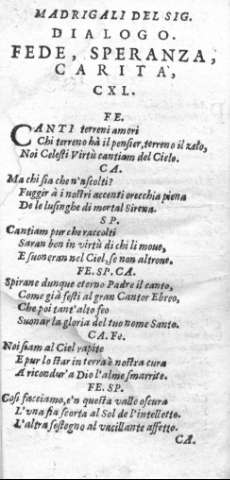 MADRIGALI DEL SIG.
DIALOGO.
FEDE, SPERANZA,
CARITA,
CXL.
FE.
CANTI terreni amori
Chi terreno hà il pensier, terreno il zelo,
Noi Celesti Virtù cantiam del Cielo.
CA.
Ma chi sia che n'ascolti?
Fuggir à i nostri accenti orecchia piena
De le lusinghe di mortal Sirena.
SP.
Cantiam pur che raccolti
Saran ben in virtù di chi li moue,
E suoneran nel Ciel, se non altroue.
FE. SP. CA.
Spirane dunque eterno Padre il canto,
Come già festi al gran Cantor Ebreo,
Che poi tant'alto feo
Suonar la gloria del tuo nome Santo.
CA. Fe.
Noi siam al Ciel rapite
E pur lo star in terra è nostra cura
A ricondur'a Dio l'alme smarrite.
FE. SP.
Così facciamo, e'n questa valle oscura
L'vna sia scorta al Sol de l'intelletto,
L'altra sostegno al vacillante affetto.
CA.